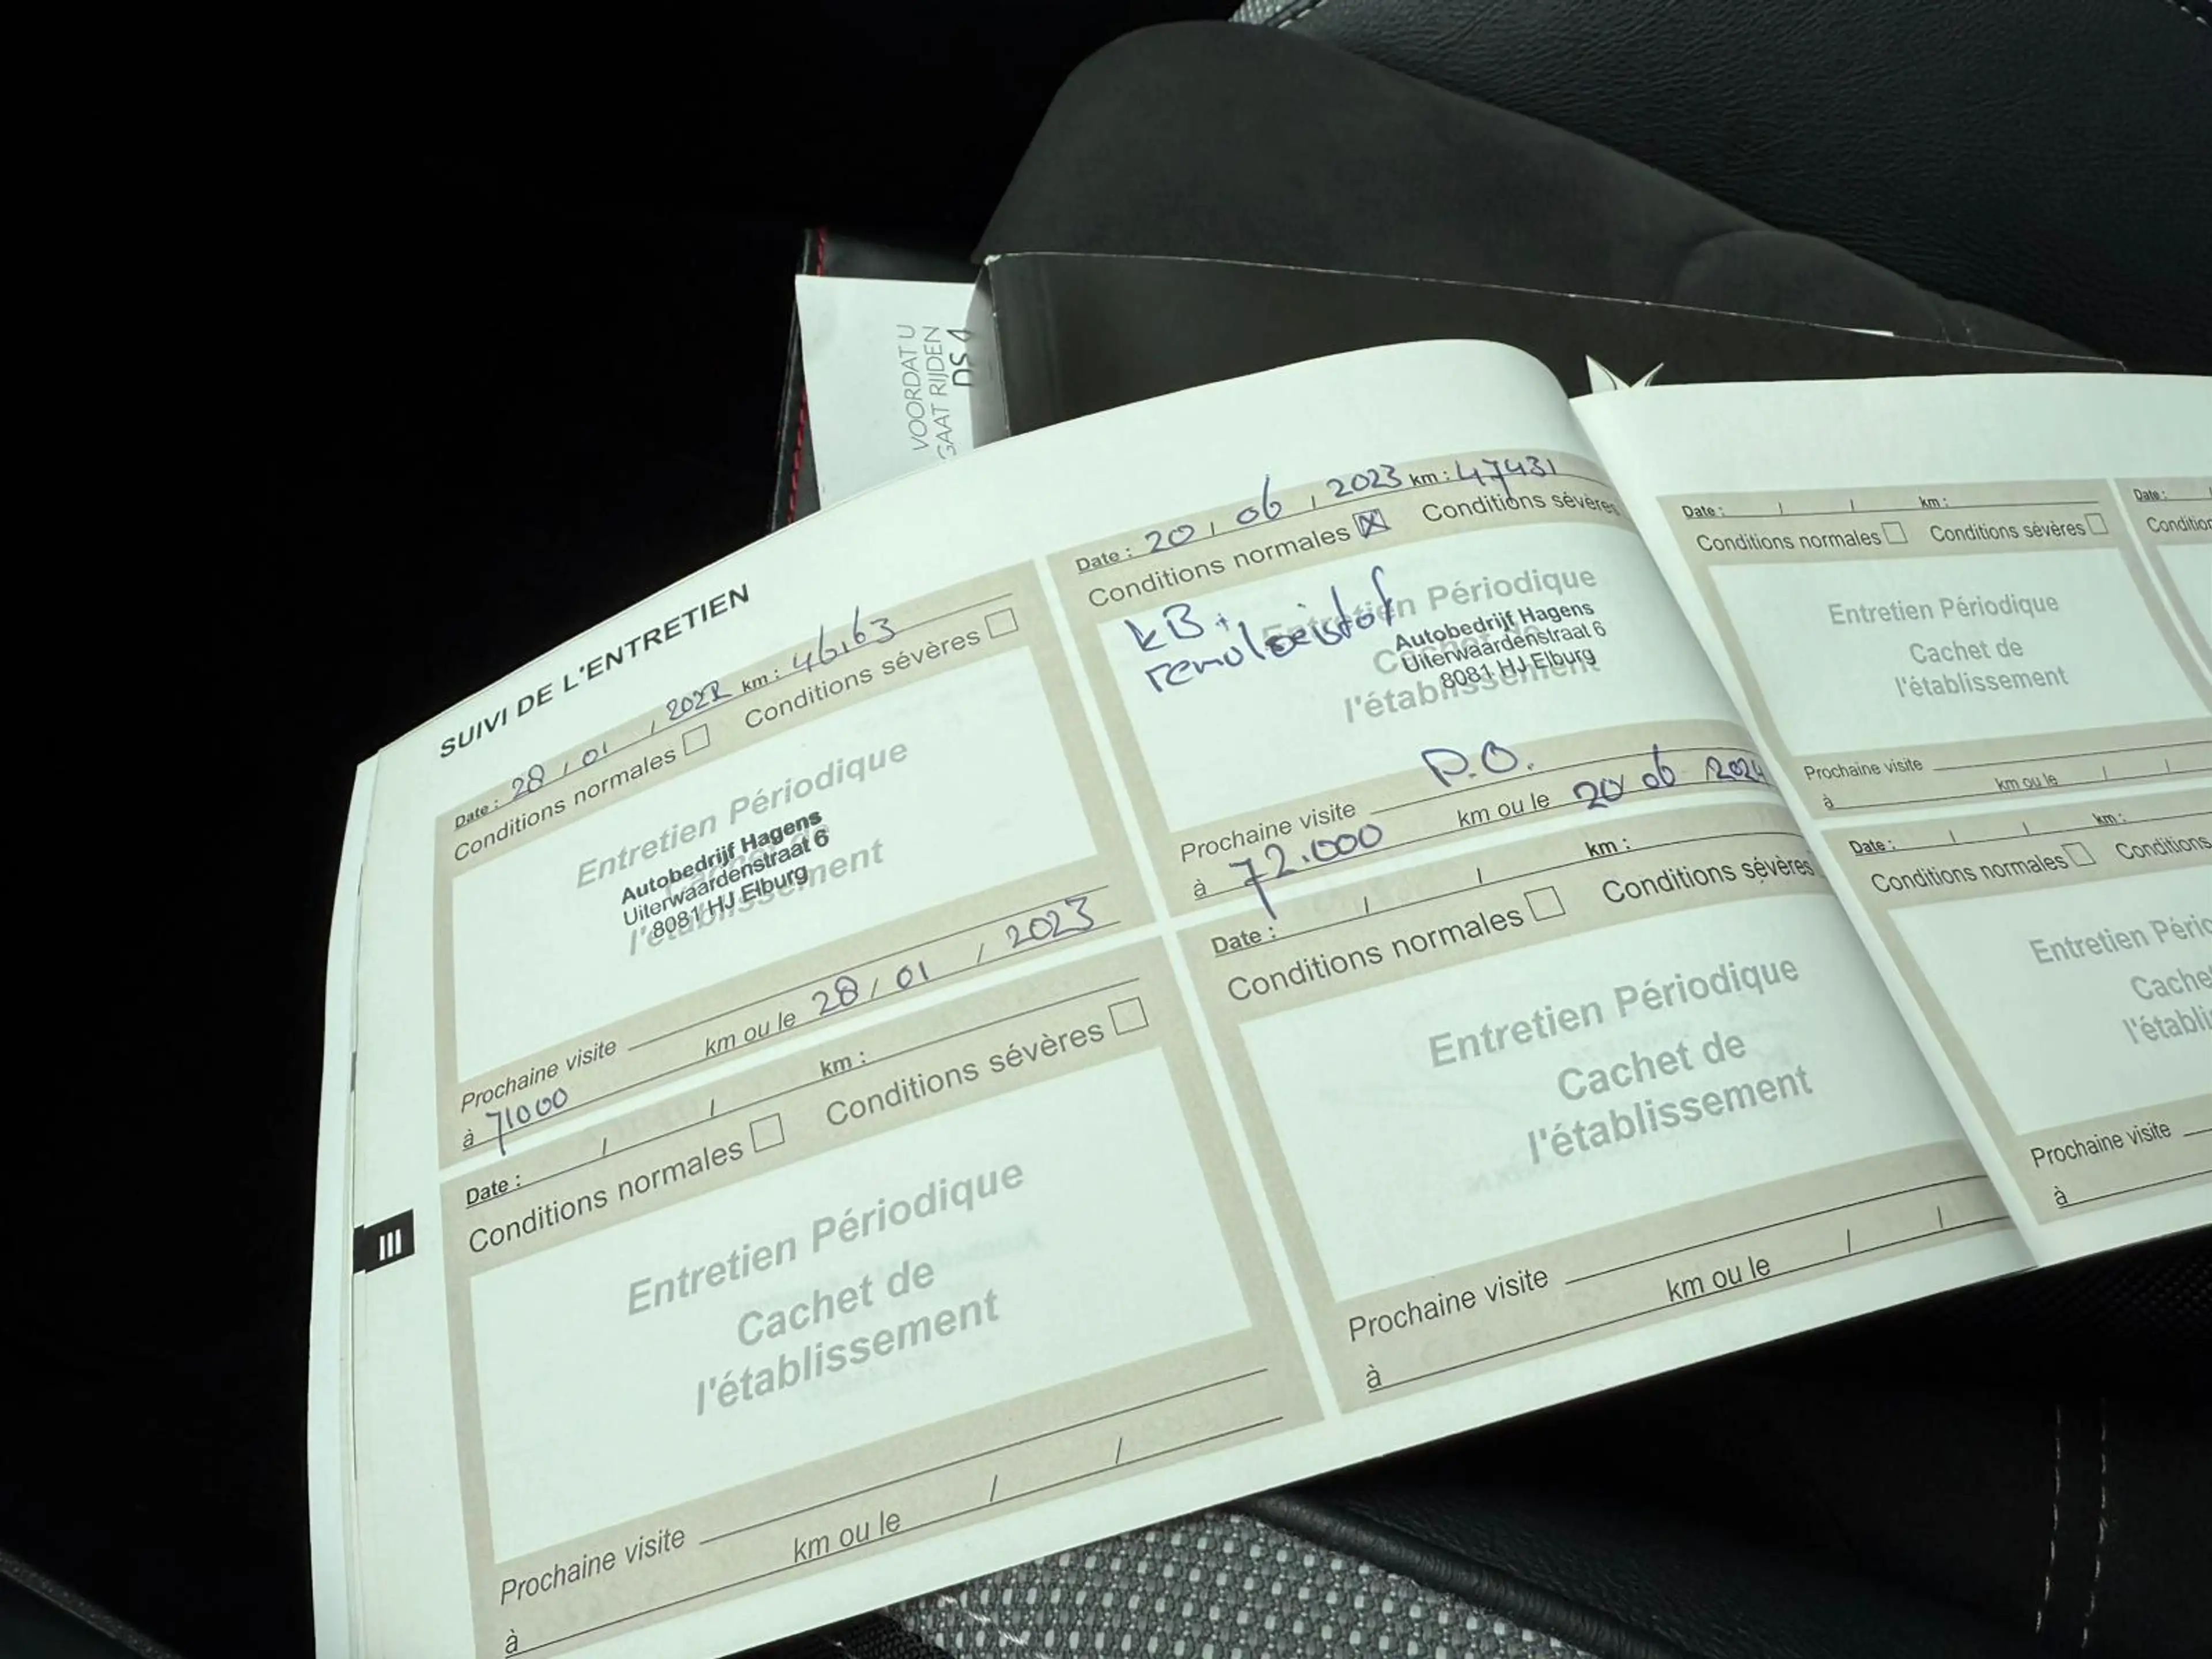 VOORDAT U
GAAT RIJDEN
DS 4
SUIVI DE L'ENTRETIEN
Date : 28 / 01 / 2022 km : 46163
Conditions normales Conditions sévères
Entretien Périodique
l'établissement
Autobedrijf Hagens
Uiterwaardenstraat 6
8081 HJ Elburg
Prochaine visite
à 71000 km ou le 28 / 01 / 2023
Date : 20 / 06 / 2023 km : 47431
Conditions normales X Conditions sévères
kB + 
remvloeistof
Entretien Périodique
l'établissement
Autobedrijf Hagens
Uiterwaardenstraat 6
8081 HJ Elburg
P.O.
Prochaine visite
à 72.000 km ou le 20 06 2024
Date : / / km :
Conditions normales Conditions sévères
Entretien Périodique
Cachet de
l'établissement
Prochaine visite
à km ou le / /
Date : / / km :
Conditions normales Conditions sévères
Entretien Périodique
Cachet de
l'établissement
Prochaine visite
à km ou le / /
III
Date : / / km :
Conditions normales Conditions sévères
Entretien Périodique
Cachet de
l'établissement
Prochaine visite
à km ou le / /
Date :
Date : / / km :
Conditions normales Conditions
Entretien
Prochaine visite
à